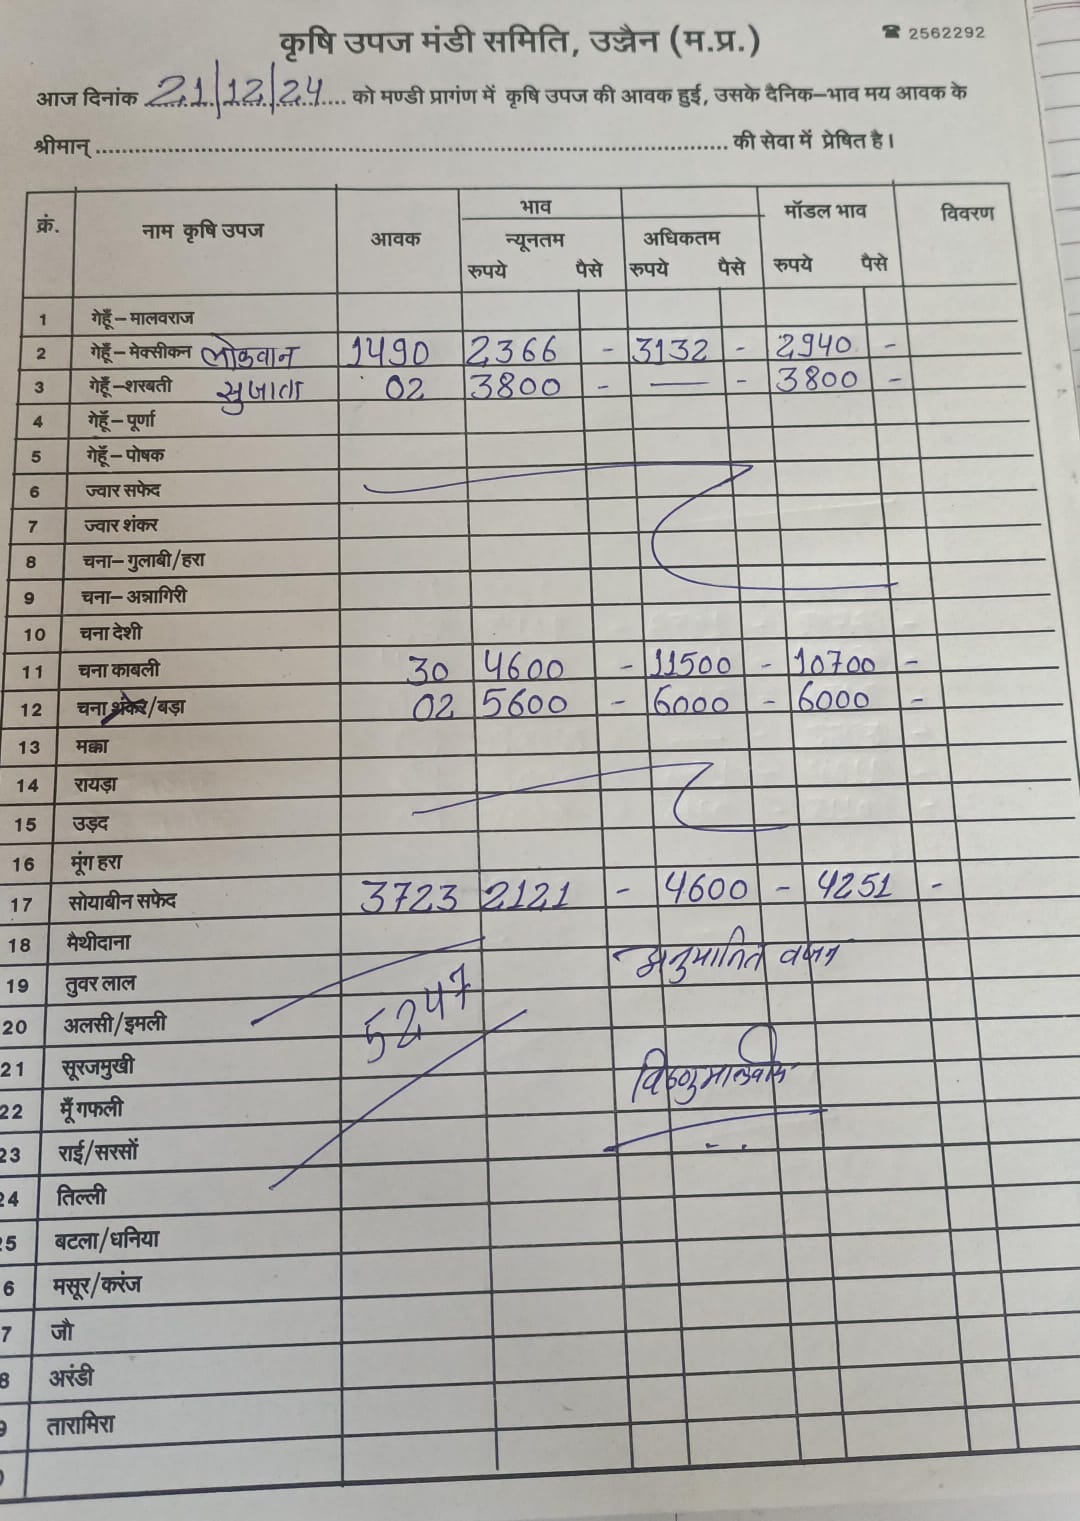 कृषि उपज मंडी समिति, उज्जैन (म.प्र.) ☎ 2562292
आज दिनांक 21/12/24 को मण्डी प्रागंण में कृषि उपज की आवक हुई, उसके दैनिक–भाव मय आवक के
श्रीमान् ........ की सेवा में प्रेषित है।
क्रं. नाम कृषि उपज आवक भाव मॉडल भाव विवरण
न्यूनतम अधिकतम
रुपये पैसे रुपये पैसे रुपये पैसे
1 गेहूँ–मालवराज
2 गेहूँ–मेक्सीकन लोकवान 1490 2366 - 3132 - 2940 -
3 गेहूँ–शरबती सुजाता 02 3800 - — - 3800 -
4 गेहूँ–पूर्णा
5 गेहूँ–पोषक
6 ज्वार सफेद
7 ज्वार शंकर
8 चना–गुलाबी/हरा
9 चना–अन्नागिरी
10 चना देशी
11 चना काबली 30 4600 - 11500 - 10700 -
12 चना शंकर/बड़ा 02 5600 - 6000 - 6000 -
13 मक्का
14 रायड़ा
15 उड़द
16 मूंग हरा
17 सोयाबीन सफेद 3723 2121 - 4600 - 4251 -
18 मैथीदाना
अनुमानित वजन
19 तुवर लाल
5247
20 अलसी/इमली
21 सूरजमुखी
22 मूँगफली
23 राई/सरसों
24 तिल्ली
25 बटला/धनिया
6 मसूर/करंज
7 जौ
8 अरंडी
9 तारामिरा